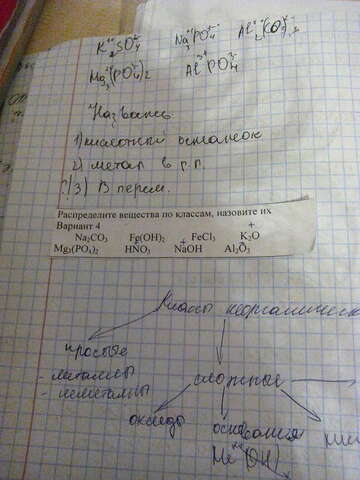 K₂⁺SO₄²⁻ Na₃⁺PO₄³⁻ Al₂
Mg₃(PO₄)₂ Al³⁺PO₄³⁻
Назвать
1) кислотный остаток
2) метал в р.п.
?(3) В перем.
Распределите вещества по классам, назовите их
Вариант 4
Na₂CO₃ Fe(OH)₂ FeCl₃ K₂O
Mg₃(PO₄)₂ HNO₃ NaOH Al₂O₃
Классы неорганическ
простые
- металлы
- неметаллы
сложные
оксиды
основания
Me(OH)